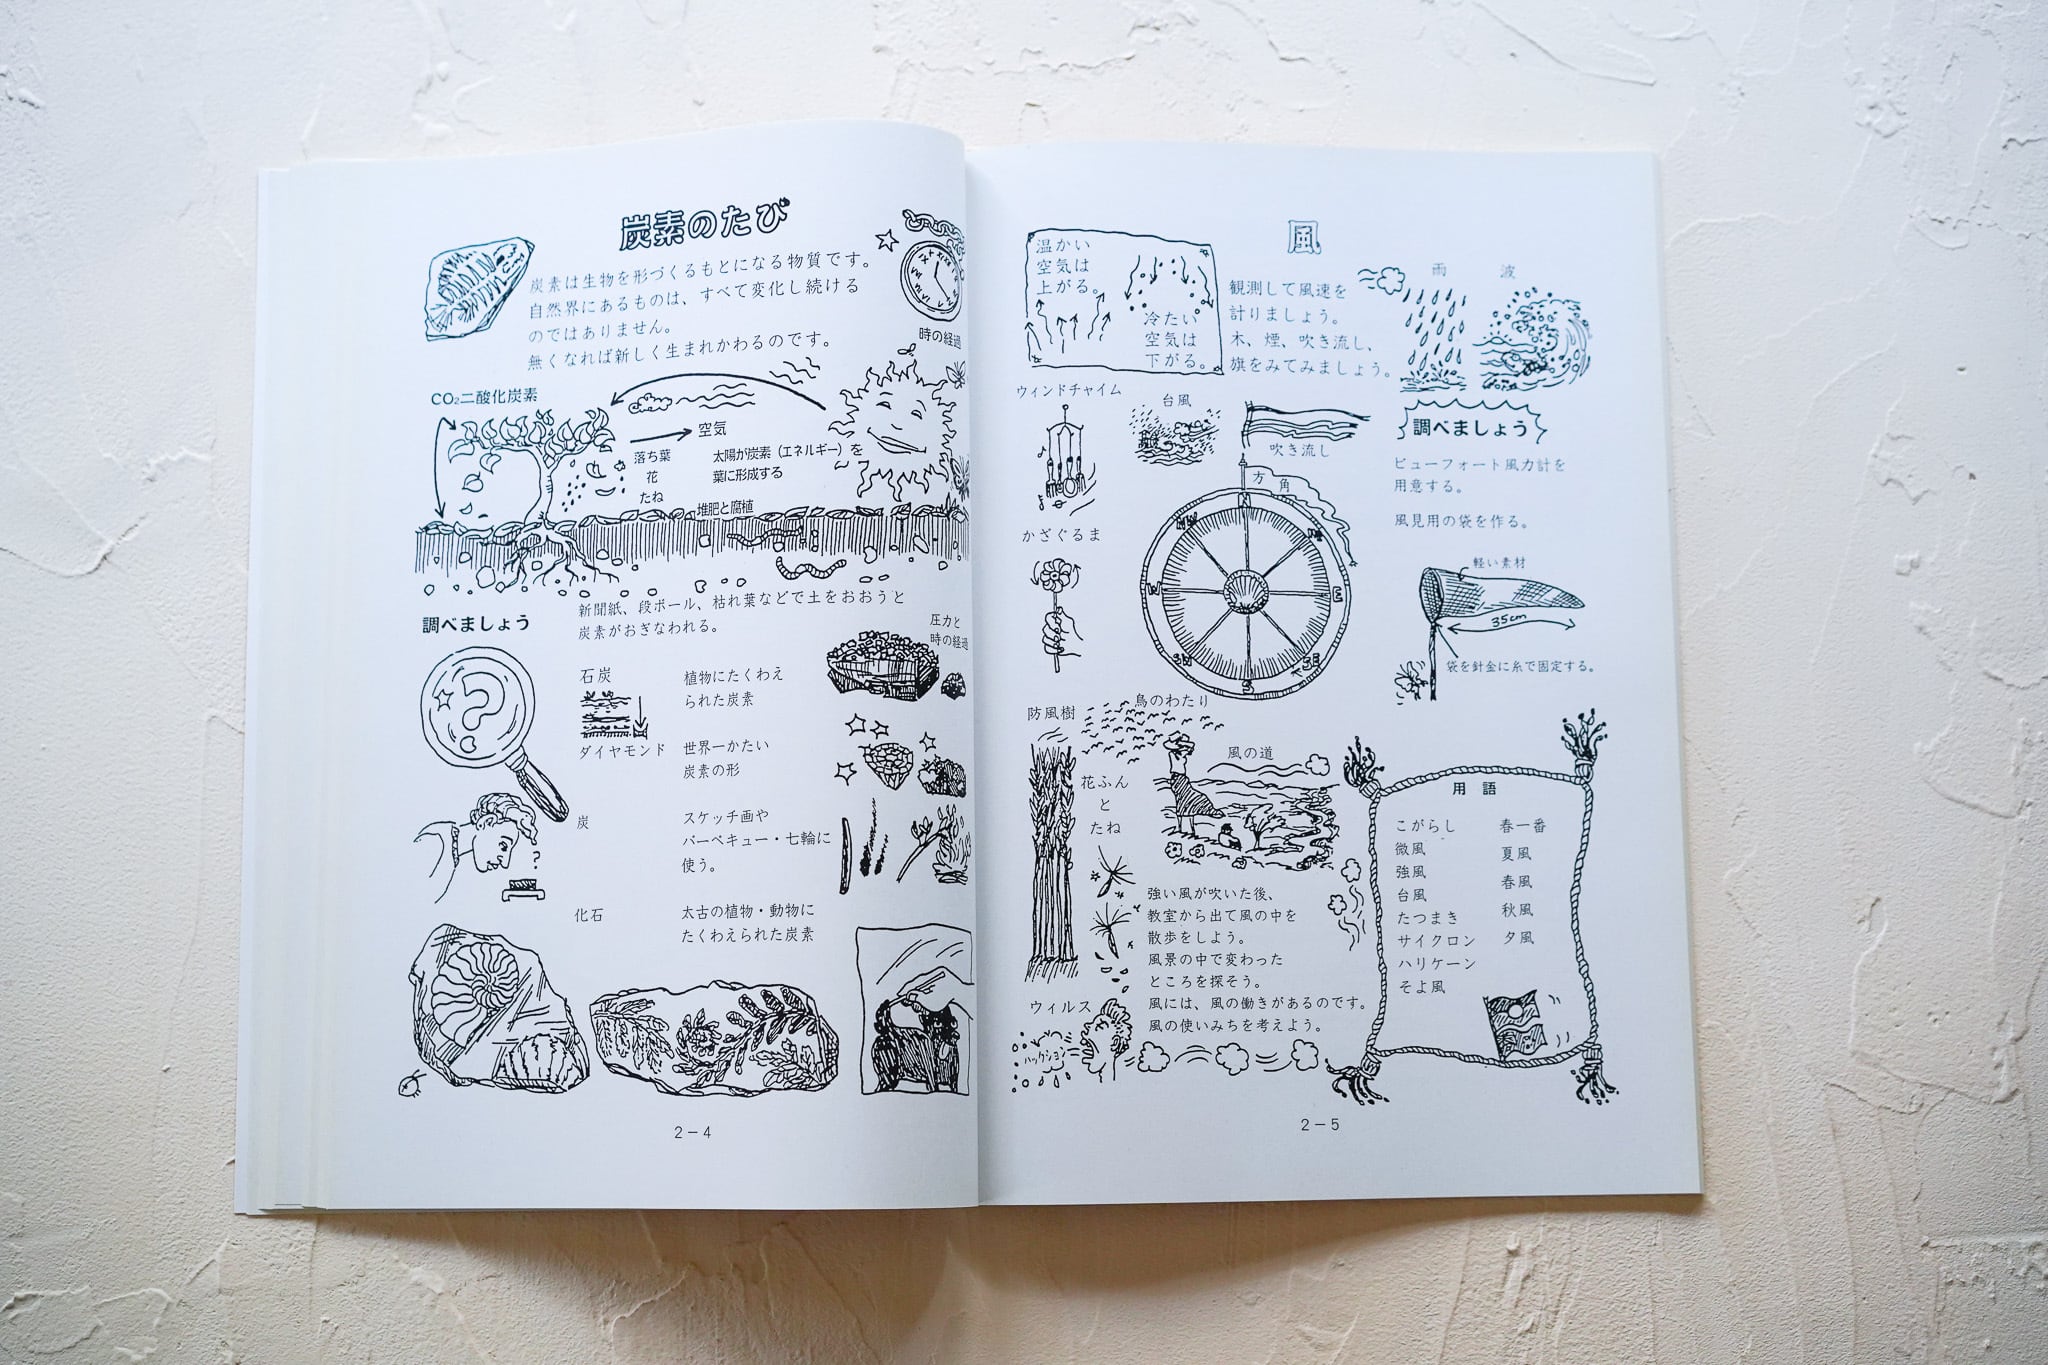 炭素のたび
炭素は生物を形づくるもとになる物質です。
自然界にあるものは、すべて変化し続ける
のではありません。
無くなれば新しく生まれかわるのです。
時の経過
CO₂二酸化炭素
空気
落ち葉
花
たね
太陽が炭素（エネルギー）を
葉に形成する
堆肥と腐植
新聞紙、段ボール、枯れ葉などで土をおおうと
炭素がおぎなわれる。
調べましょう
圧力と
時の経過
石炭
植物にたくわえ
られた炭素
ダイヤモンド
世界一かたい
炭素の形
炭
スケッチ画や
バーベキュー・七輪に
使う。
化石
太古の植物・動物に
たくわえられた炭素
?
2－4
風
温かい
空気は
上がる。
冷たい
空気は
下がる。
観測して風速を
計りましょう。
木、煙、吹き流し、
旗をみてみましょう。
雨
波
ウィンドチャイム
台風
吹き流し
調べましょう
ビューフォート風力計を
用意する。
風見用の袋を作る。
方角
N
NW
W
E
SW
SE
S
かざぐるま
軽い素材
35cm
袋を針金に糸で固定する。
防風樹
鳥のわたり
風の道
花ふん
と
たね
強い風が吹いた後、
教室から出て風の中を
散歩をしよう。
風景の中で変わった
ところを探そう。
風には、風の働きがあるのです。
風の使いみちを考えよう。
ウィルス
ハックション
用語
こがらし
微風
強風
台風
たつまき
サイクロン
ハリケーン
そよ風
春一番
夏風
春風
秋風
夕風
2－5